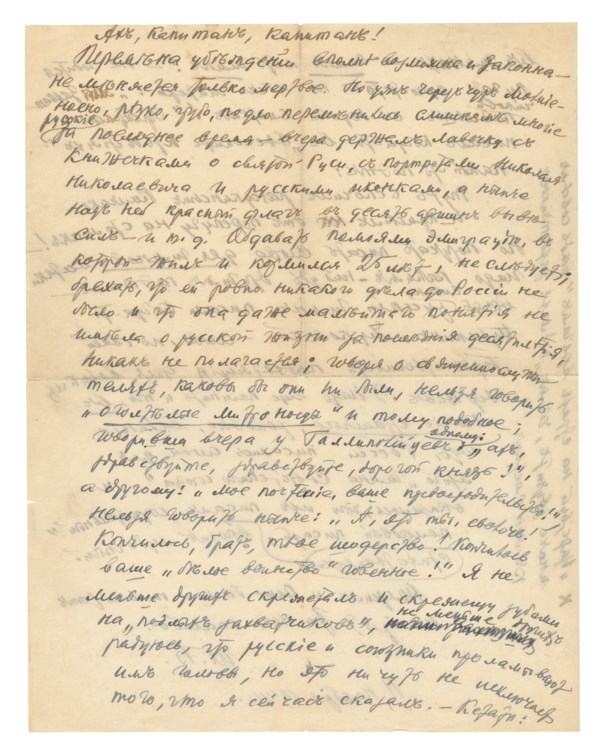 Ахъ, Капитанъ, Капитанъ!
Перемѣна убѣжденій вполнѣ возможна и законна —
не мѣняется только мертвое. Но ужъ черезчуръ молніе-
носно, рѣзко, грубо, подло перемѣнились слишкомъ многіе
русскіе
за последнее время — вчера держалъ лавочку съ
книжечками о святой Руси, съ портретами Николая
Николаевича и русскими иконками, а нынче
надъ ней красный флагъ въ десять аршинъ вывѣ
силъ — и т. д. Обдавать помоями эмиграцію, въ
которой жилъ и кормился 25 лѣтъ, не слѣдуетъ;
брехать, что ей ровно никакого дѣла до Россіи не
было и что она даже малѣйшаго понятія не
имѣла о русской жизни за послѣднія десятилѣтія,
никакъ не полагается; говоря о священнослужи
теляхъ, каковы бы они ни были, нельзя говорить
"оголтѣлые митроносцы" и тому подобное;
говоривши вчера у Галлиполійцевъ одному: "ахъ,
здравствуйте, здравствуйте, дорогой князь!",
а другому: "мое почтеніе, ваше превосходительство!",
нельзя говорить нынче: "А, это ты, сволочь!
Кончилось, братъ, твое шодерство! Кончилось
ваше "бѣлое воинство" говенное!" Я не
меньше другихъ скрежеталъ и скрежещу зубами
на "подлыхъ захватчиковъ", не меньше другихъ
радуюсь, что русскіе и союзники проламываютъ
имъ головы, но это ничуть не исключаетъ
того, что я сейчасъ сказалъ. — Кстати: